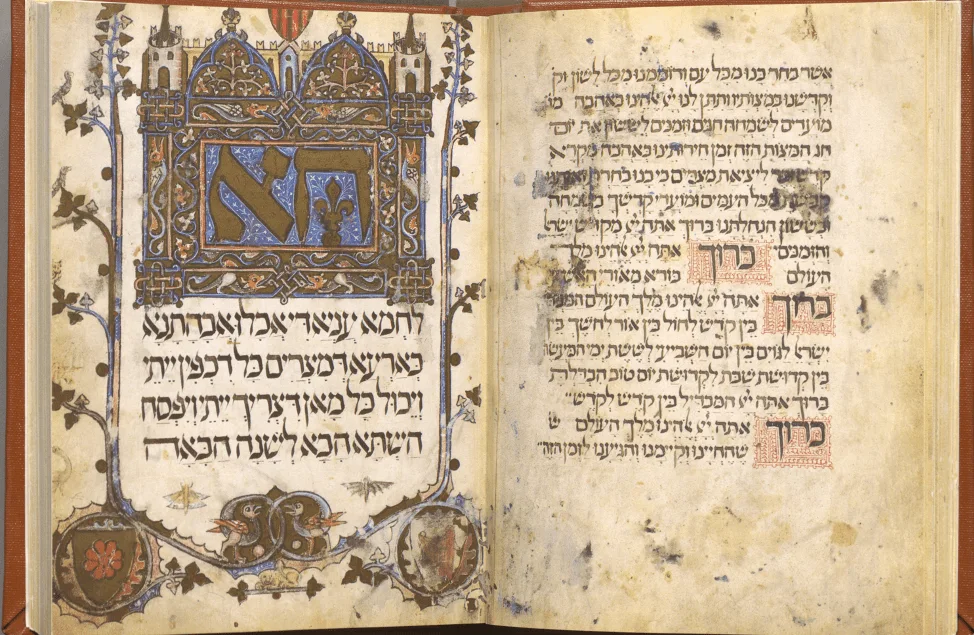 אשר בחר בנו מכל עם ורוממנו מכל לשון וק
וקדשנו במצותיו ותתן לנו יי אלהינו באהבה מו
מועדים לשמחה חגים וזמנים לששון את יום
חג המצות הזה זמן חירותינו באהבה מקרא
קדש זכר ליציאת מצרים כי בנו בחרת ואותנו
קדשת מכל העמים ומועדי קדשך בשמחה
ובששון הנחלתנו ברוך אתה יי מקדש ישרא
והזמנים ברוך אתה יי אלהינו מלך
העולם בורא מאורי האש
ברוך אתה יי אלהינו מלך העולם המבד
בין קדש לחול בין אור לחשך בין
ישראל לגוים בין יום השביעי לששת ימי המעשה
בין קדושת שבת לקדושת יום טוב הבדלת
ברוך אתה יי המבדיל בין קדש לקדש
ברוך אתה יי אלהינו מלך העולם ש
שהחיינו וקיימנו והגיענו לזמן הזה
הא
לחמא עניא די אכלו אבהתנא
בארעא דמצרים כל דכפין ייתי
ויכול כל מאן דצריך ייתי ויפסח
השתא הכא לשנה הבאה